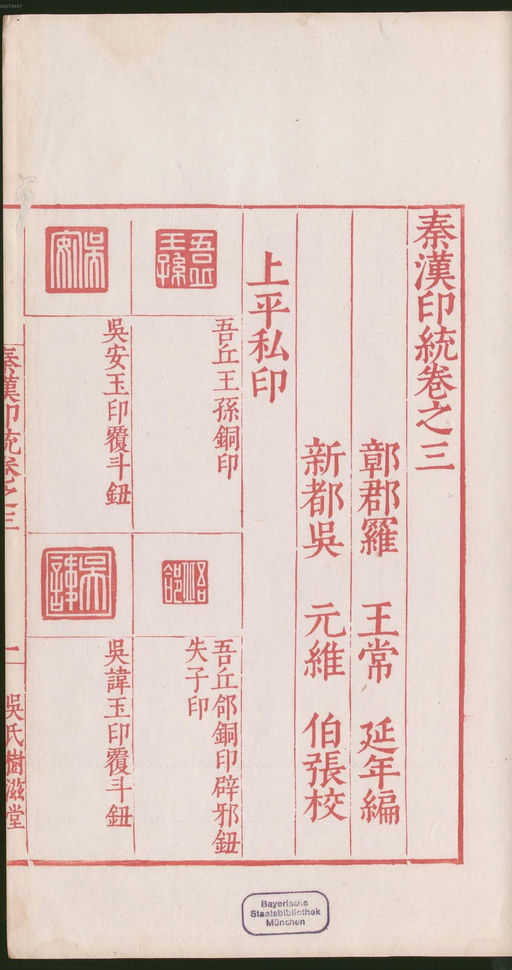 秦漢印統卷之三
鄣郡羅 王常 延年編
新都吳 元維 伯張校
上平私印
吾丘王孫
吾丘王孫銅印
吾丘郃銅印辟邪鈕
失子印
吳安
吳安玉印覆斗鈕
吳諱
吳諱玉印覆斗鈕
秦漢印統卷之三
一
吳氏樹滋堂
Bayerische
Staatsbibliothek
München
00073467